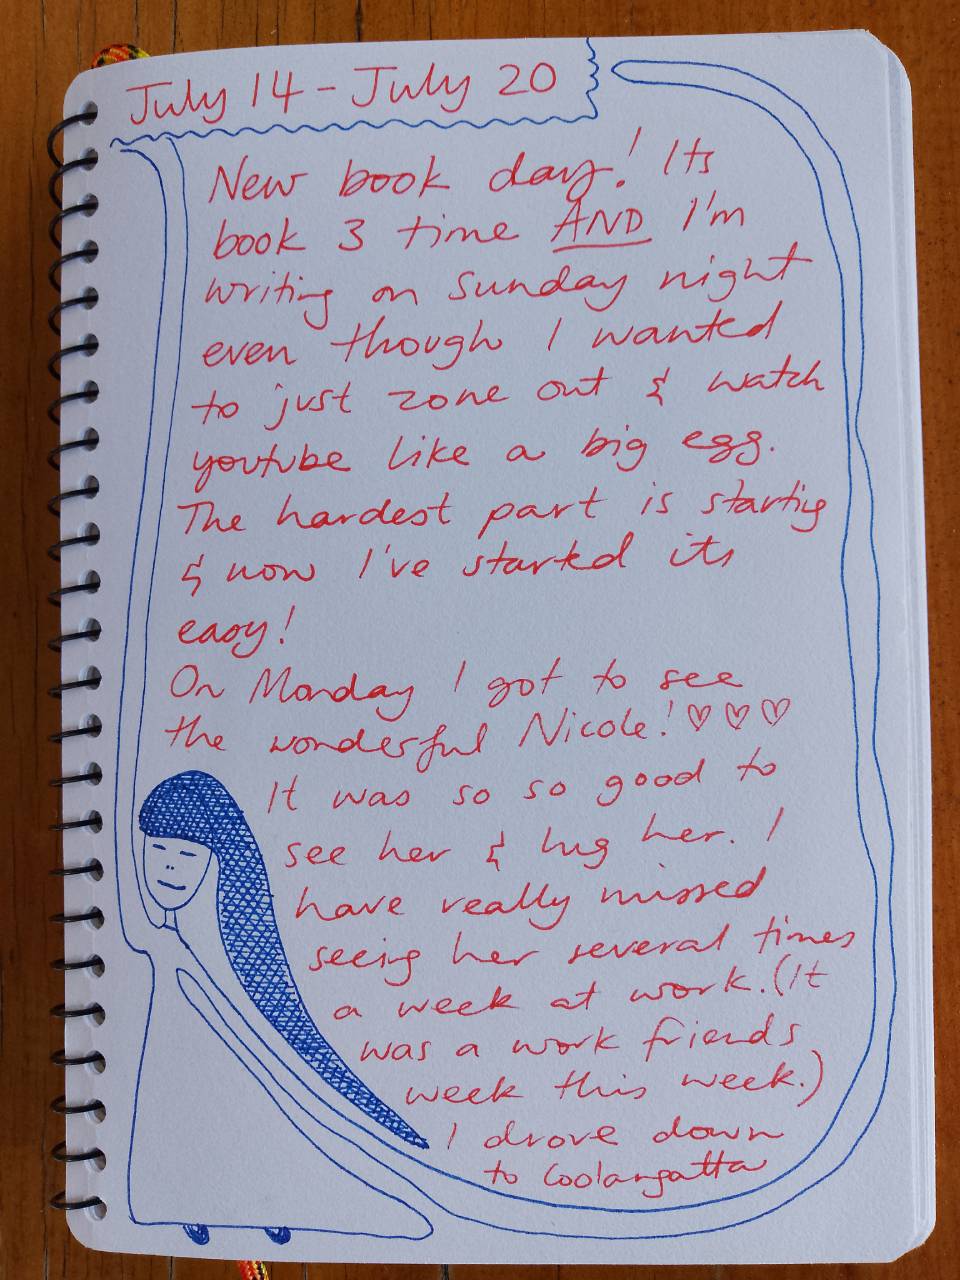 July 14 - July 20
New book day! Its
book 3 time AND I'm
writing on Sunday night
even though I wanted
to just zone out & watch
youtube like a big egg.
The hardest part is starting
& now I've started its
easy!
On Monday I got to see
the wonderful Nicole! ♡♡♡
It was so so good to
see her & hug her. I
have really missed
seeing her several times
a week at work. (It
was a work friends
week this week.)
I drove down
to Coolangatta